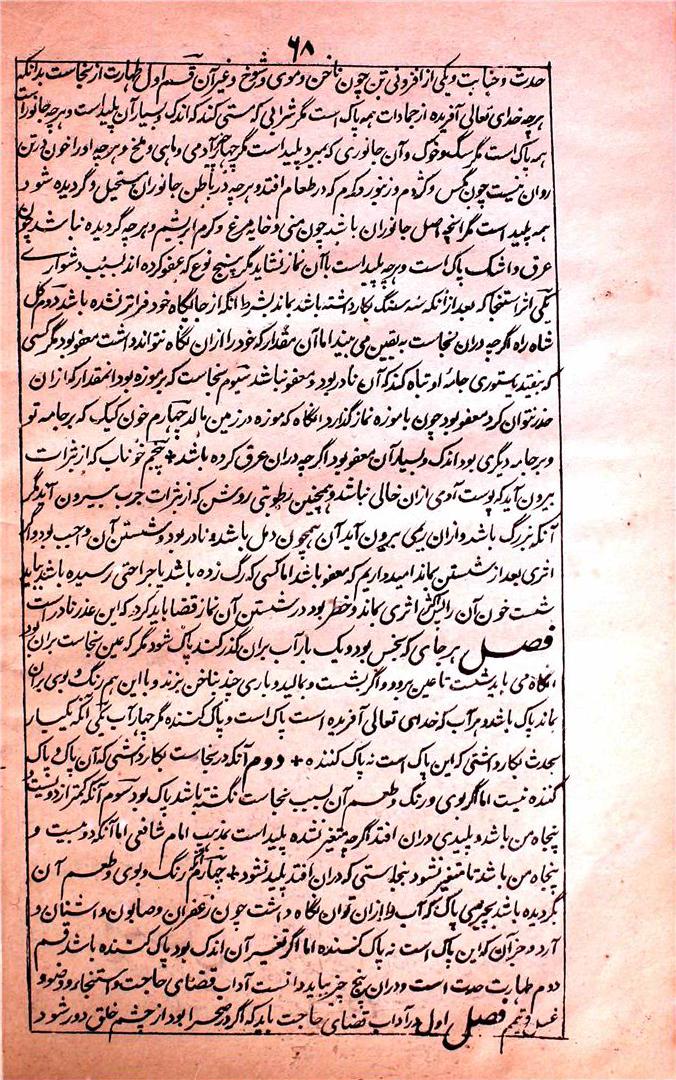 ۶۸
حدث و جنابت و یکی از افزونی تن چون ناخن و موی و شوخ و غیر آن قسم اول طهارت از نجاست بدانکه
هرچه خدای تعالی آفریده از جمادات همه پاک است مگر شرابی که مستی کند که اندک و بسیار آن پلید است و هرچه جانور است
همه پاک است مگر سگ و خوک و آن جانوری که بمیرد پلید است مگر چهار چیز آدمی و ماهی و ملخ و هرچه او را خون در تن
روان نیست چون مگس و کژدم و زنبور و کرم که در طعام افتد و هرچه در باطن جانوران مستحیل و گردیده شود
همه پلید است مگر آنچه اصل جانوران باشد چون منی و خایه مرغ و کرم ابریشم و هرچه گردیده نباشد چون
عرق و اشک پاک است و هرچه پلید است با آن نماز نشاید مگر پنج نوع که عفو کرده اند بسبب دشواری
یکی اثر استنجا که بعد از آنکه سه سنگ بکار داشته باشد بماند بشرط آنکه از جایگاه خود فراتر نشده باشد دوم گل
شاه راه اگرچه در آن نجاست به یقین می بیند اما آن مقدار که خود را از آن نگاه نتواند داشت معفو بود مگر کسی
که بیفتد یا ستوری جامه او تباه کند که آن نادر بود و معفو نباشد سیوم نجاست که بر موزه بود آنقدر که از آن
حذر نتوان کرد معفو بود چون با موزه نماز گذارد آنگاه که موزه در زمین بمالد چهارم خون کیک که بر جامه تو
و بر جامه دیگری بود اندک و بسیار آن معفو بود اگرچه در آن عرق کرده باشد + پنجم خوناب که از بثرات
بیرون آید که پوست آدمی از آن خالی نباشد و همچنین رطوبتی روشن که از بثرات جرب بیرون آید مگر
آنکه بزرگ باشد و از آن ریمی بیرون آید آن همچون دمل باشد و نادر بود و شستن آن واجب بود و اگر
اثری بعد از شستن بماند امیدواریم که معفو باشد اما کسی که رگ زده باشد یا جراحتی رسیده باشد بباید
شست خون آن را پس اگر اثری بماند و خطر بود در شستن آن نماز قضا باید کرد که این عذر نادر است
فصل هر جای که نجس بود و یک بار آب بر آن گذر کند پاک شود مگر که عین نجاست بر آن بود
آنگاه می باید شست تا عین برود و اگر بشست و بمالید و باری چند بناخن بزند و با این هم رنگ و بوی بر آن
بماند پاک باشد و هر آب که خدای تعالی آفریده است پاک است و پاک کننده مگر چهار آب یکی آنکه یکبار
بحدث بکار داشتی که این پاک است نه پاک کننده + دوم آنکه در نجاست بکار داشتی که آن پاک و پاک
کننده نیست اما اگر بوی و رنگ و طعم آن بسبب نجاست نگشته باشد پاک بود سوم آنکه کمتر از دویست و
پنجاه من باشد و پلیدی در آن افتد اگرچه متغیر نشده پلید است بمذهب امام شافعی اما آنکه دویست و
پنجاه من باشد تا متغیر نشود بنجاستی که در آن افتد پلید نشود + چهارم آنکه رنگ و بوی و طعم آن
بگردیده باشد بچیزی پاک که آب را از آن توان نگاه داشت چون زعفران و صابون و اشنان و
آرد و جز آن که این پاک است نه پاک کننده اما اگر تغیر آن اندک بود پاک کننده باشد قسم
دوم طهارت حدث است و در آن پنج چیز بباید دانست آداب قضای حاجت و استنجا و وضو و
غسل و تیمم فصل اول در آداب قضای حاجت باید که اگر در صحرا بود از چشم خلق دور شود